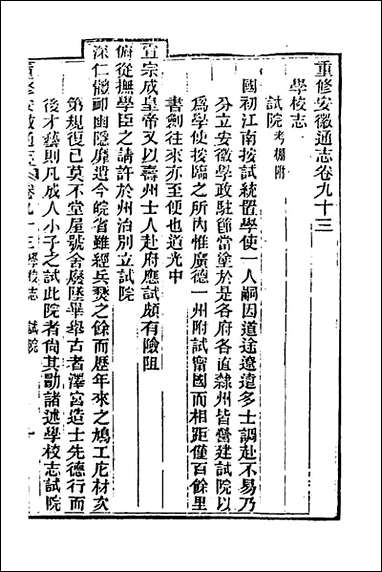 重修安徽通志卷九十三
學校志
試院 考棚附
國初江南按試統置學使一人嗣因道途遼遠多士調赴不易乃
分立安徽學政駐節當塗於是各府各直隸州皆營建試院以
爲學使按臨之所內惟廣德一州附試甯國而相距僅百餘里
書劍往來亦至便也道光中
宣宗成皇帝又以壽州士人赴府應試頗有險阻
俯從撫學臣之請許於州治別立試院
深仁微卹幽隱靡遺今皖省雖經兵燹之餘而歷年來之鳩工庀材亥
第規復已莫不堂屋號舍廢墜畢舉古者澤宮造士先德行而
後才藝則凡成人小子之試此院者尙其勖諸述學校志試院
重修安徽通志 卷九十三 學校志 試院 一